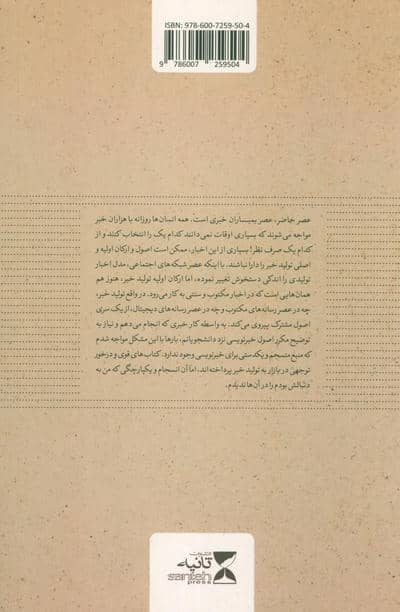 ISBN: 978-600-7259-50-4
9 786007 259504
عصر حاضر، عصر بمبـاران خبری است. همه انسان‌ها روزانه با هزاران خبر
مواجه می‌شوند که بسیاری اوقات نمی‌دانند کدام یک را انتخاب کنند و از
کدام یک صرف نظر! بسیاری از این اخبار، ممکن است اصول و ارکان اولیه و
اصلی تولید خبر را دارا نباشند. با اینکه عصر شبکه‌های اجتماعی، مدل اخبار
تولیدی را اندکی دستخوش تغییر نموده، اما ارکان اولیه تولید خبر، هنوز هم
همان‌هایی است که در اخبار مکتوب و سنتی به کار می‌رود. در واقع تولید خبر،
چه در عصر رسانه‌های مکتوب و چه در عصر رسانه‌های دیجیتال، از یک سری
اصول مشترک پیروی می‌کند. به واسطه کار خبری که انجام می‌دهم و نیاز به
توضیح مکرر اصول خبرنویسی نزد دانشجویانم، بارها با این مشکل مواجه شدم
که منبع منسجم و یکدستی برای خبرنویسی وجود ندارد. کتاب‌های قوی و درخور
توجهی در بازار به تولید خبر پرداخته‌اند. اما آن انسجام و یکپارچگی که من به
دنبالش بودم را در آن‌ها ندیدم.
انتشارات
ثانیه
sanieh
press